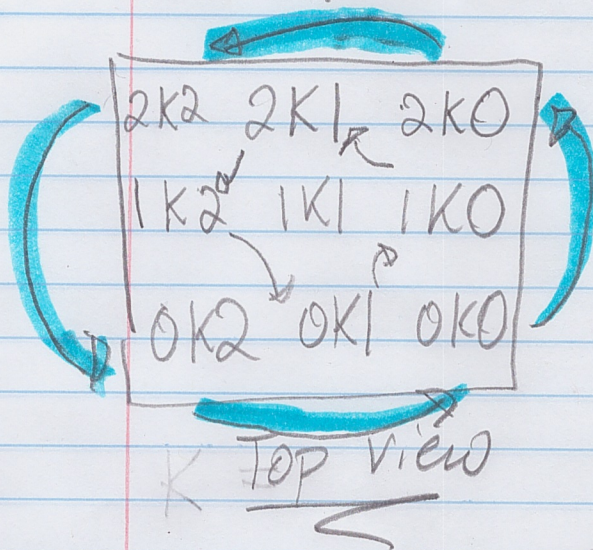 2K2 2K1 2K0
1K2 1K1 1K0
0K2 0K1 0K0
K Top View